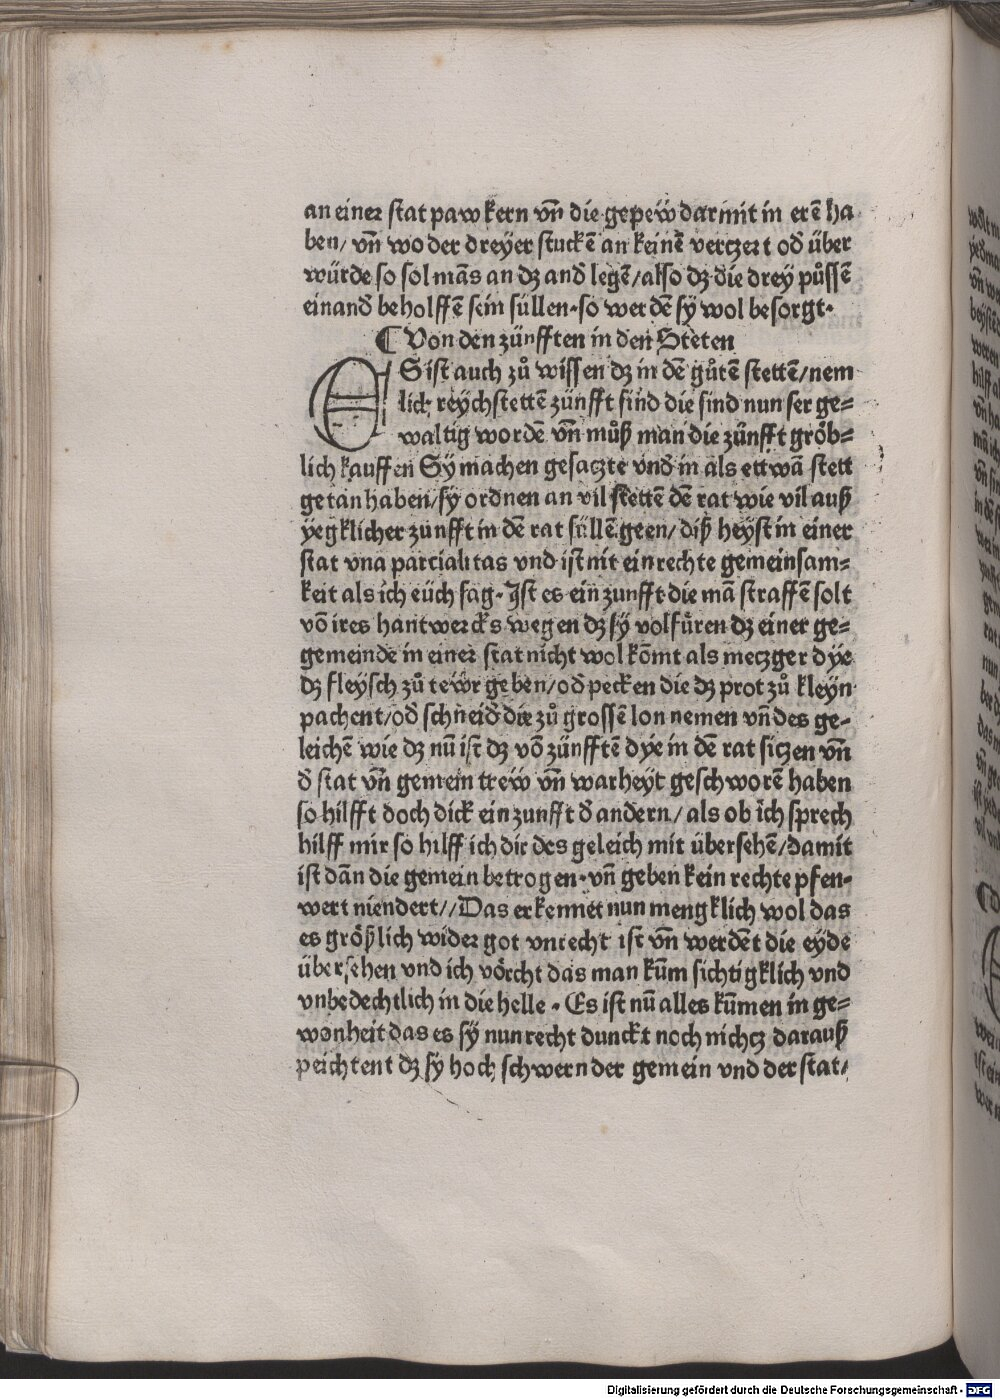 an einer stat pawkern vñ die gepew̎ darmit in erẽ ha
ben/ vñ wo der dreyer stuckẽ an keinẽ verczert oð über
würde so sol mãs an dʒ anð legẽ/also dʒ die drey půssẽ
einanð beholffẽ sein süllen·so werdẽ sy wol besorgt·
¶ Von den zünfften in den Steten
ES ist auch zů wissen dʒ in dẽ gůtẽ stettẽ/nem
lich reychstettẽ zünfft sind die sind nun ser ge⸗
waltig wordẽ vñ můß man die zünfft gröb⸗
lich kauffen Sy machen gesaczte vnd in als ettwã stett
getan haben/sy ordnen an vil stettẽ dẽ rat wie vil auß
yegklicher zunfft in dẽ rat süllẽ geen/ diß heyst in einer
stat vna parcialitas vnd ist nit ein rechte gemeinsam⸗
keit als ich eüch sag·Ist es ein zunfft die mã straffẽ solt
võ ires hantwercks wegen dʒ sy volfüren dʒ einer ge⸗
gemeinde in einer stat nicht wol kõmt als meczger dye
dʒ fleysch zů tewr geben/oð pecken die dʒ prot zů kleyn
pachent/oð schneið die zů grossẽ lon nemen vñ des ge⸗
leichẽ wie dʒ nũ ist dʒ võ zünfftẽ dye in dẽ rat siczen vñ
ð stat vñ gemein trew vñ warheyt geschworẽ haben
so hilfft doch dick ein zunfft ð andern/ als ob ich sprech
hilff mir so hilff ich dir des geleich mit übersehẽ/damit
ist dãn die gemein betrogen·vñ geben kein rechte pfen⸗
wert niendert// Das erkennet nun mengklich wol das
es größlich wider got vnrecht ist vñ werdẽt die eyde
übersehen vnd ich vörcht das man kũm sichtigklich vnd
vnbedechtlich in die helle · Es ist nũ alles kũmen in ge⸗
wonheit das es sy nun recht dunckt noch nichcz darauß
peichtent dʒ sy hoch schwern der gemein vnd der stat/
Digitalisierung gefördert durch die Deutsche Forschungsgemeinschaft - DFG